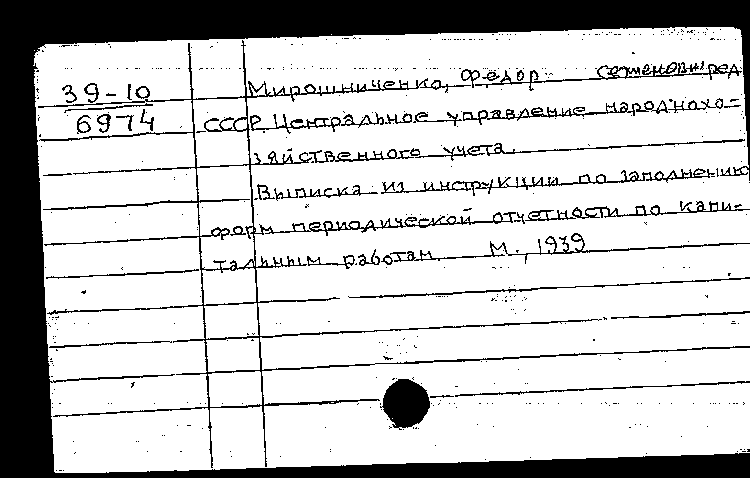 39-10
6974
Мирошниченко, Федор Семенович ред
СССР. Центральное управление народнохо-
зяйственного учета.
Выписка из инструкции по заполнению
форм периодической отчетности по капи-
тальным работам. М., 1939